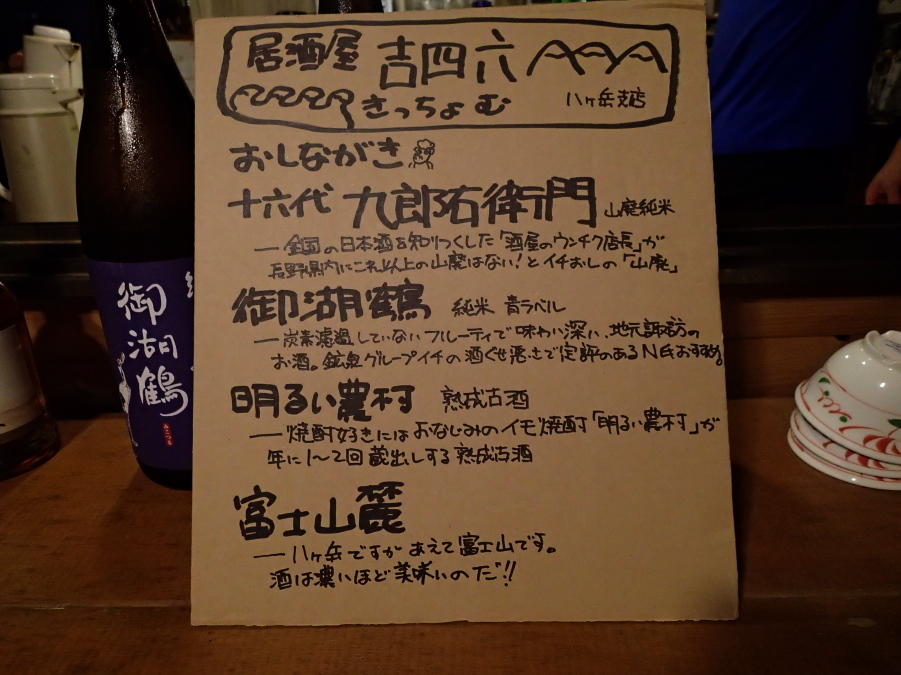 居酒屋 吉四六
きっちょむ 八ヶ岳支店
おしながき
十六代 九郎右衛門 山廃純米
― 全国の日本酒を知りつくした「酒屋のウンチク店長」が
長野県内にこれ以上の山廃はない!とイチおしの「山廃」
御湖鶴 純米 青ラベル
― 炭素濾過していないフルーティで味わい深い、地元諏訪の
お酒。鉱泉グループイチの酒ぐせ悪さで定評のあるN氏おすすめ。
明るい農村 熟成古酒
― 焼酎好きにはおなじみのイモ焼酎「明るい農村」が
年に1〜2回蔵出しする熟成古酒
富士山麓
― 八ヶ岳ですがあえて富士山です。
酒は濃いほど美味いのだ!!
御湖鶴